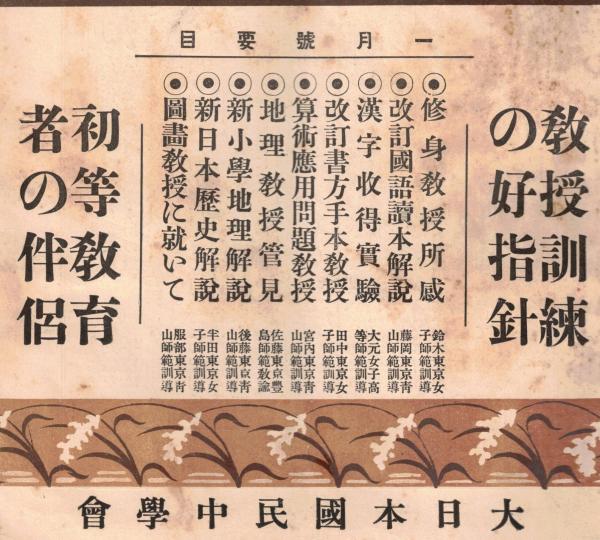 教授訓練
の好指針
一月號要目
◉修身教授所感 鈴木東京女子師範訓導
◉改訂國語讀本解說 藤岡東京靑山師範訓導
◉漢字收得實驗 大元女子高等師範訓導
◉改訂書方手本教授 田中東京女子師範訓導
◉算術應用問題教授 宮内東京靑山師範訓導
◉地理教授管見 佐藤東京豐島師範教諭
◉新小學地理解說 後藤東京靑山師範訓導
◉新日本歷史解說 半田東京女子師範訓導
◉圖畫教授に就いて 服部東京靑山師範訓導
初等教育
者の伴侶
大日本國民中學會